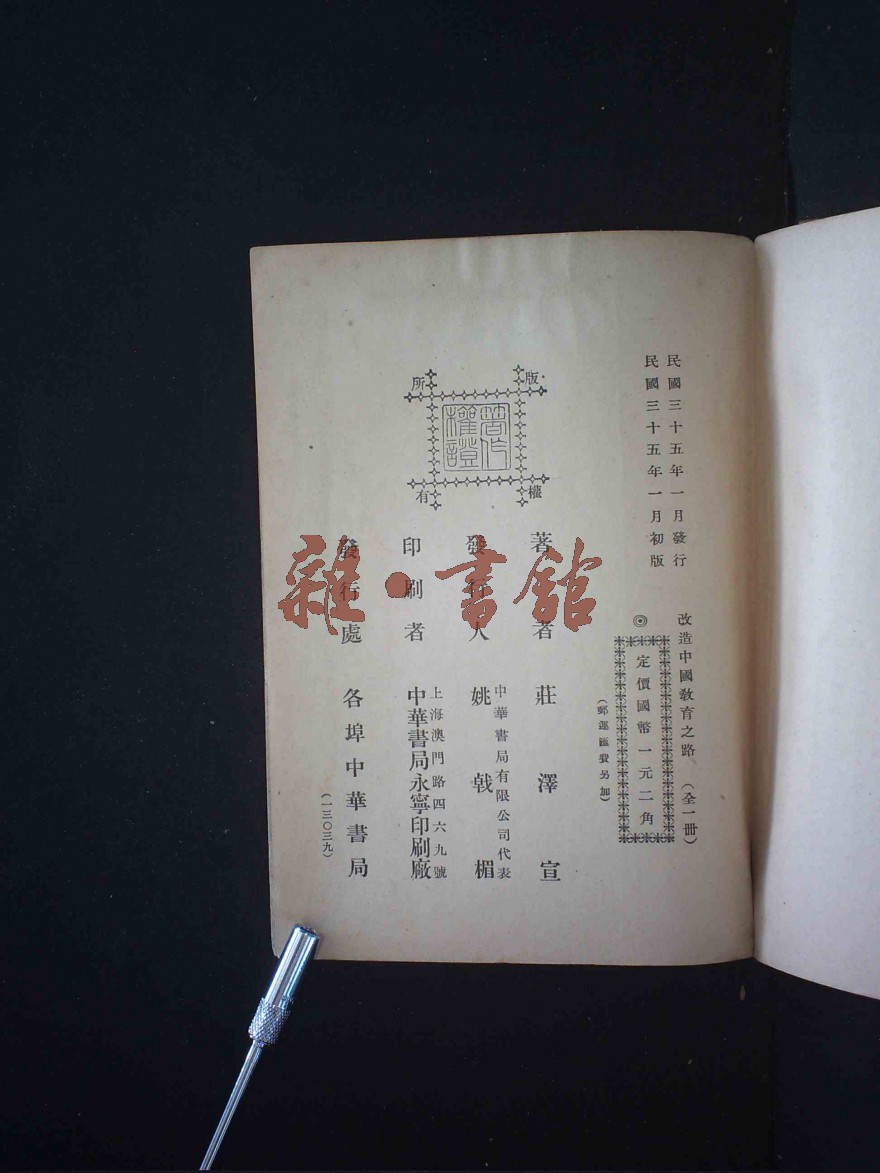 民國三十五年一月發行
民國三十五年一月初版
改造中國教育之路（全一冊）
◎定價國幣一元二角
（郵運匯費另加）
版權所有
著作權證
著者 莊澤宣
發行人 中華書局有限公司代表
姚戟楣
印刷者 上海澳門路四六九號
中華書局永寧印刷廠
發行處 各埠中華書局
（一三〇三九）
雜·書館